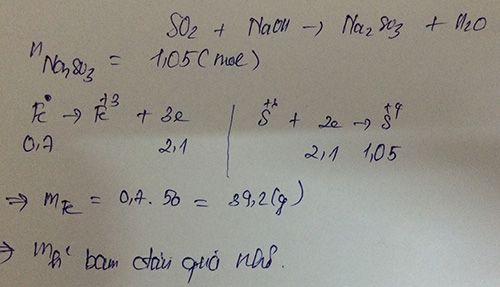 SO2 + NaOH → Na2SO3 + H2O
nNa2SO3 = 1,05 (mol)
Fe0 → Fe+3 + 3e | S+6 + 2e → S+4
0,7 2,1 | 2,1 1,05
⇒ mFe = 0,7 . 56 = 39,2 (g)
⇒ ban đầu quá nhỏ.